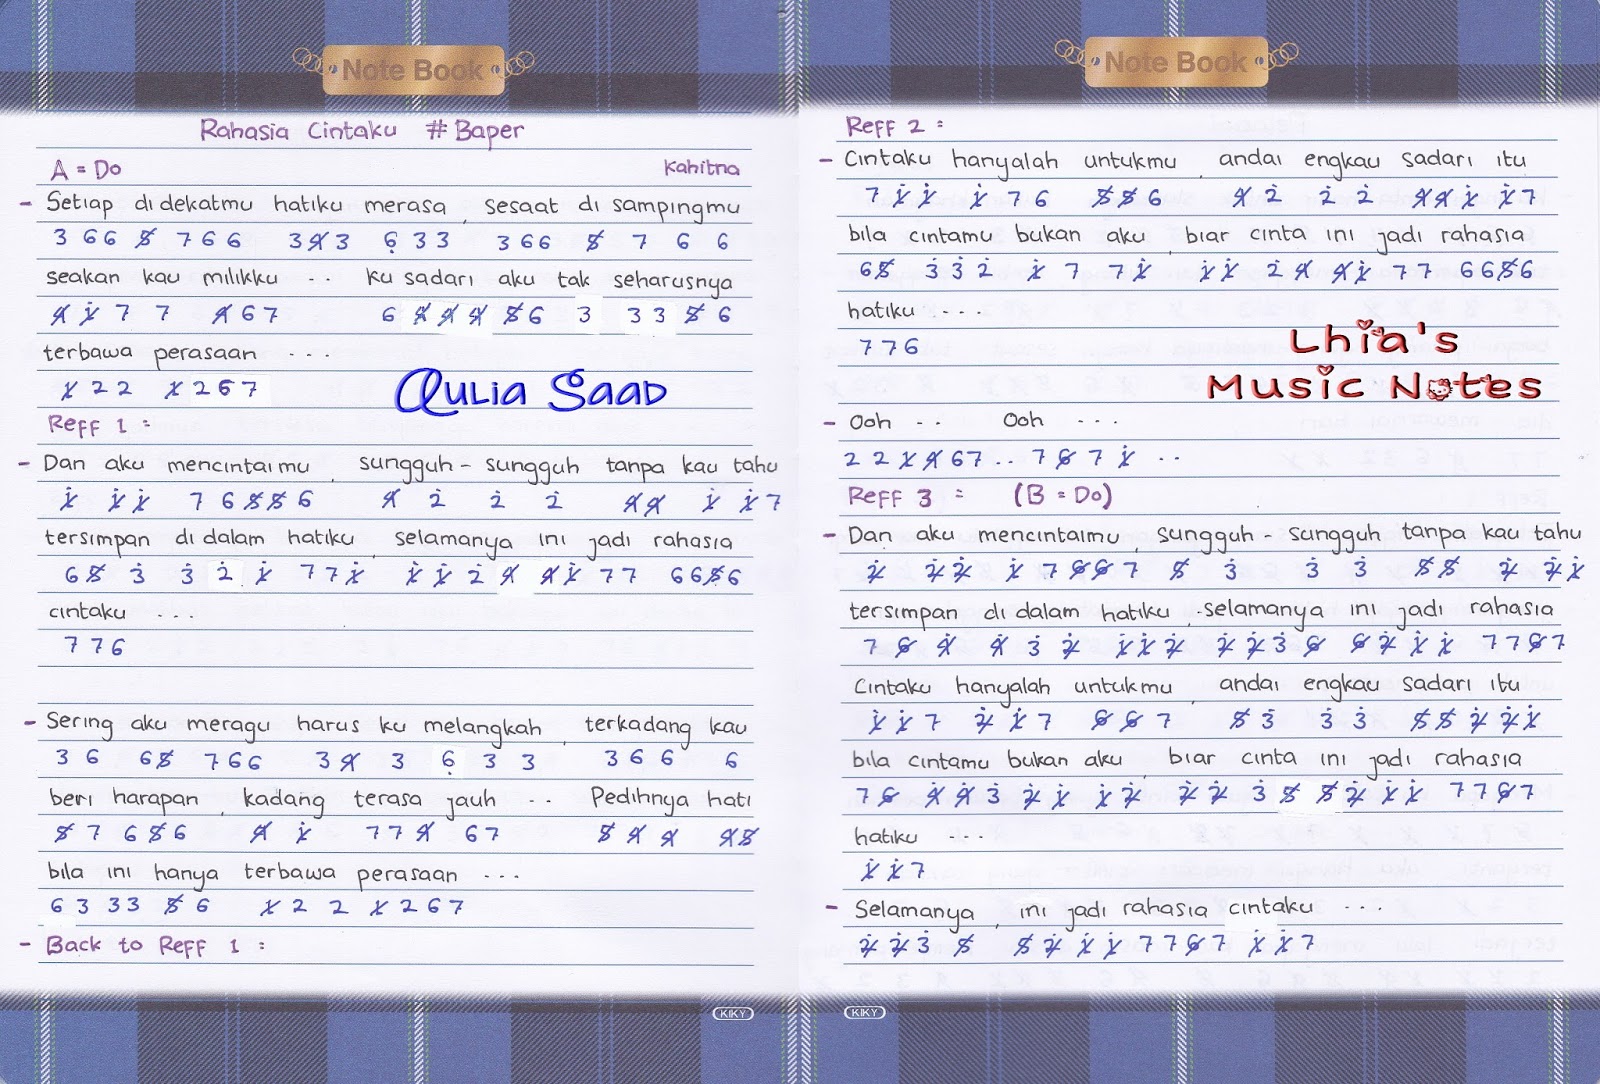 Note Book
Rahasia Cintaku # Baper
A = Do Kahitna
- Setiap di dekatmu hatiku merasa, sesaat di sampingmu
3 6 6 5̸ 7 6 6 3 4̸ 3 6̣ 3 3 3 6 6 5̸ 7 6 6
seakan kau milikku ... ku sadari aku tak seharusnya
4̸ 1̸̇ 7 7 4̸ 6 7 6 4̸ 4̸ 4̸ 5̸ 6 3 3 3 5̸ 6
terbawa perasaan ...
1̸ 2 2 1̸ 2 6 7
Qulia Saad
Reff 1 :
- Dan aku mencintaimu, sungguh - sungguh tanpa kau tahu
1̸̇ 1̸̇ 1̸̇ 7 6 5̸ 5̸ 6 4̸ 2̇ 2̇ 2̇ 4̸ 4̸ 1̸̇ 1̸̇ 7
tersimpan di dalam hatiku, selamanya ini jadi rahasia
6 5̸ 3̇ 3̇ 2̇ 1̸̇ 7 7 1̸̇ 1̸̇ 1̸̇ 2̇ 4̸ 4̸ 1̸̇ 7 7 6 6 5̸ 6
cintaku ...
7 7 6
- Sering aku meragu harus ku melangkah, terkadang kau
3 6 6 5̸ 7 6 6 3 4̸ 3 6̣ 3 3 3 6 6 6
beri harapan, kadang terasa jauh ... Pedihnya hati
5̸ 7 6 5̸ 6 4̸ 1̸̇ 7 7 4̸ 6 7 5̸ 4̸ 4̸ 4̸ 5̸
bila ini hanya terbawa perasaan ...
6 3 3 3 5̸ 6 1̸ 2 2 1̸ 2 6 7
- Back to Reff 1 :
KIKY
Note Book
Reff 2 :
- Cintaku hanyalah untukmu, andai engkau sadari itu
7 1̸̇ 1̸̇ 1̸̇ 7 6 5̸ 5̸ 6 4̸ 2̇ 2̇ 2̇ 4̸ 4̸ 1̸̇ 1̸̇ 7
bila cintamu bukan aku, biar cinta ini jadi rahasia
6 5̸ 3̇ 3̇ 2̇ 1̸̇ 7 7 1̸̇ 1̸̇ 1̸̇ 2̇ 4̸ 4̸ 1̸̇ 7 7 6 6 5̸ 6
hatiku ...
7 7 6
Lhia's
Music Notes
- Ooh .. Ooh ...
2 2 1̸ 4̸ 6 7 .. 7 6̸ 7 1̸̇ ..
Reff 3 : (B = Do)
- Dan aku mencintaimu, sungguh - sungguh tanpa kau tahu
2̸̇ 2̸̇ 2̸̇ 1̸̇ 7 6̸ 6̸ 7 5̸ 3̇ 3̇ 3̇ 5̸ 5̸ 2̸̇ 2̸̇ 1̸̇
tersimpan di dalam hatiku, selamanya ini jadi rahasia
7 6̸ 4̸̇ 4̸̇ 3̇ 2̸̇ 1̸̇ 1̸̇ 2̸̇ 2̸̇ 2̸̇ 3̇ 6̸ 6̸ 2̸̇ 1̸̇ 1̸̇ 7 7 6̸ 7
Cintaku hanyalah untukmu, andai engkau sadari itu
1̸̇ 1̸̇ 7 2̸̇ 1̸̇ 7 6̸ 6̸ 7 5̸ 3̇ 3̇ 3̇ 5̸ 5̸ 2̸̇ 2̸̇ 1̸̇
bila cintamu bukan aku, biar cinta ini jadi rahasia
7 6̸ 4̸̇ 4̸̇ 3̇ 2̸̇ 1̸̇ 1̸̇ 2̸̇ 2̸̇ 2̸̇ 3̇ 5̸ 5̸ 2̸̇ 1̸̇ 1̸̇ 7 7 6̸ 7
hatiku ...
1̸̇ 1̸̇ 7
- Selamanya, ini jadi rahasia cintaku ...
2̸̇ 2̸̇ 3̇ 5̸ 5̸ 2̸̇ 1̸̇ 1̸̇ 7 7 6̸ 7 1̸̇ 1̸̇ 7
KIKY